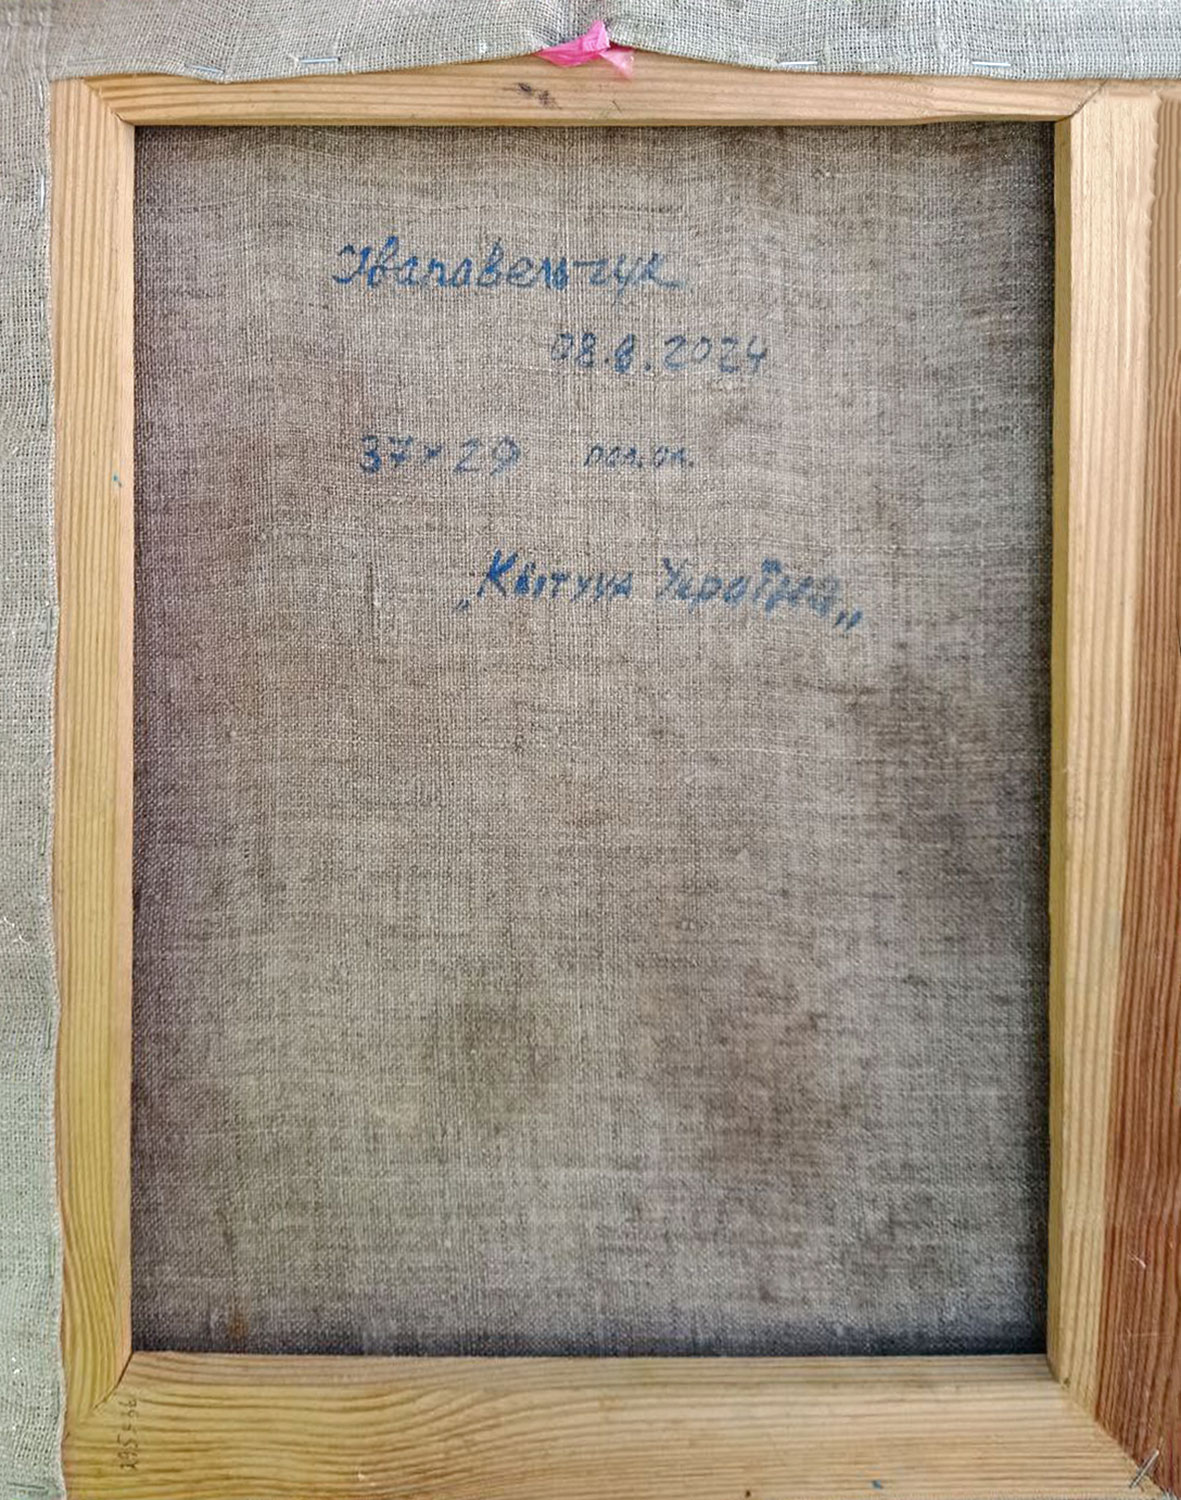 Івапавельчук
08.8.2024
37×29 пол. ол.
„Квітуча Україна„